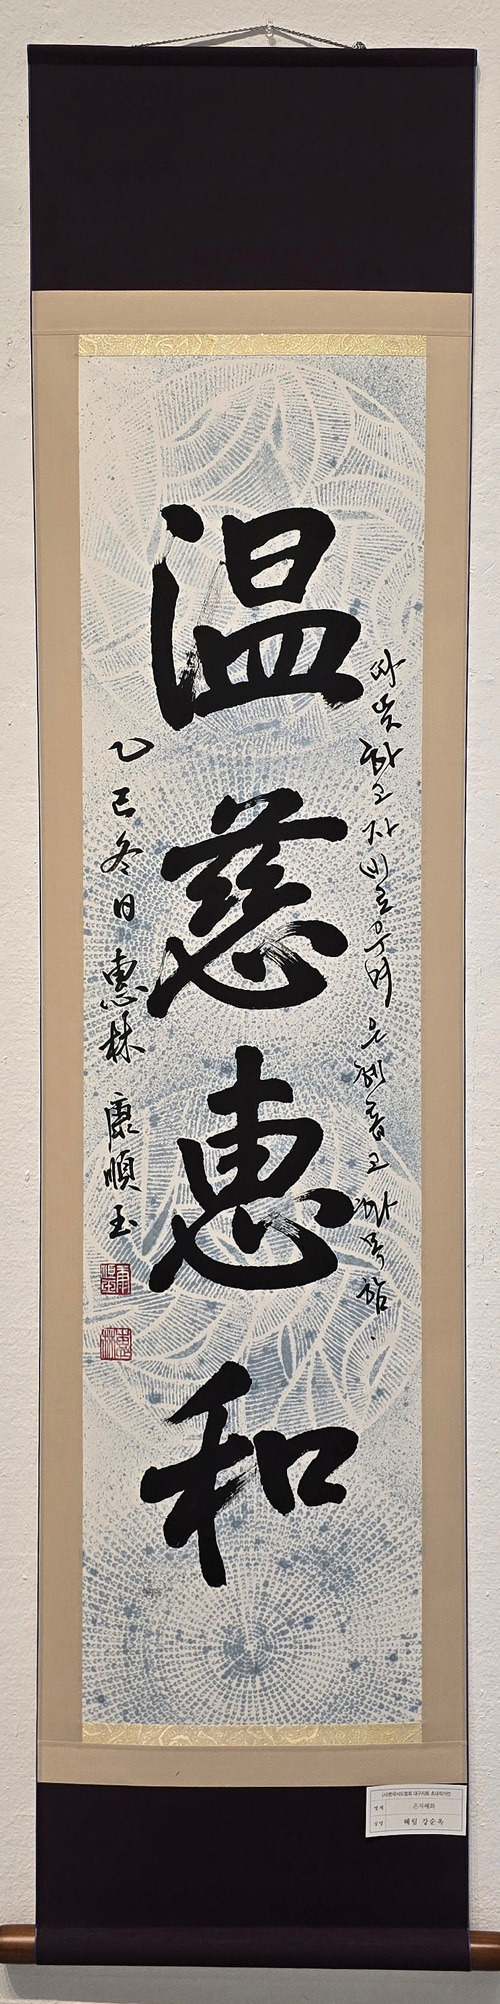 温慈惠和
따뜻하고 자비로우며 은혜롭고 화목함.
乙巳冬日 惠林 康順玉
(사)한국서도협회 대구지회 초대작가전
명제 온자혜화
성명 혜림 강순옥